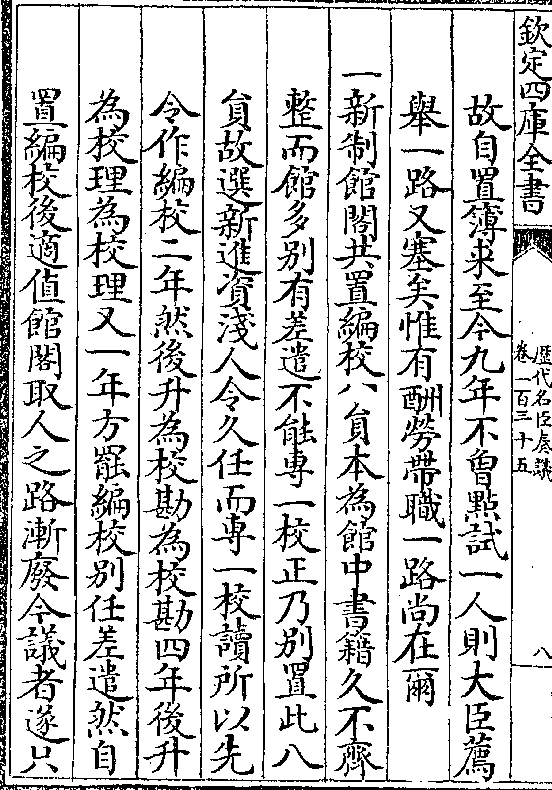 欽定四庫全書
歷代名臣奏議
卷一百三十五
八
故自置簿求至今九年不曾點試一人則大臣薦
舉一路又塞矣惟有酬勞帶職一路尚在爾
一新制館閣共置編校八員本為館中書籍久不齊
整而館多别有差遣不能專一校正乃别置此八
員故選新進資淺人令久任而專一校讀所以先
令作編校二年然後升為校勘為校勘四年後升
為校理為校理又一年方罷編校别任差遣然自
置編校後適值館閣取人之路漸廢今議者遂只